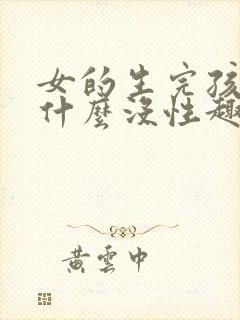 女的生完孩
什麼沒性趣
黃雲中